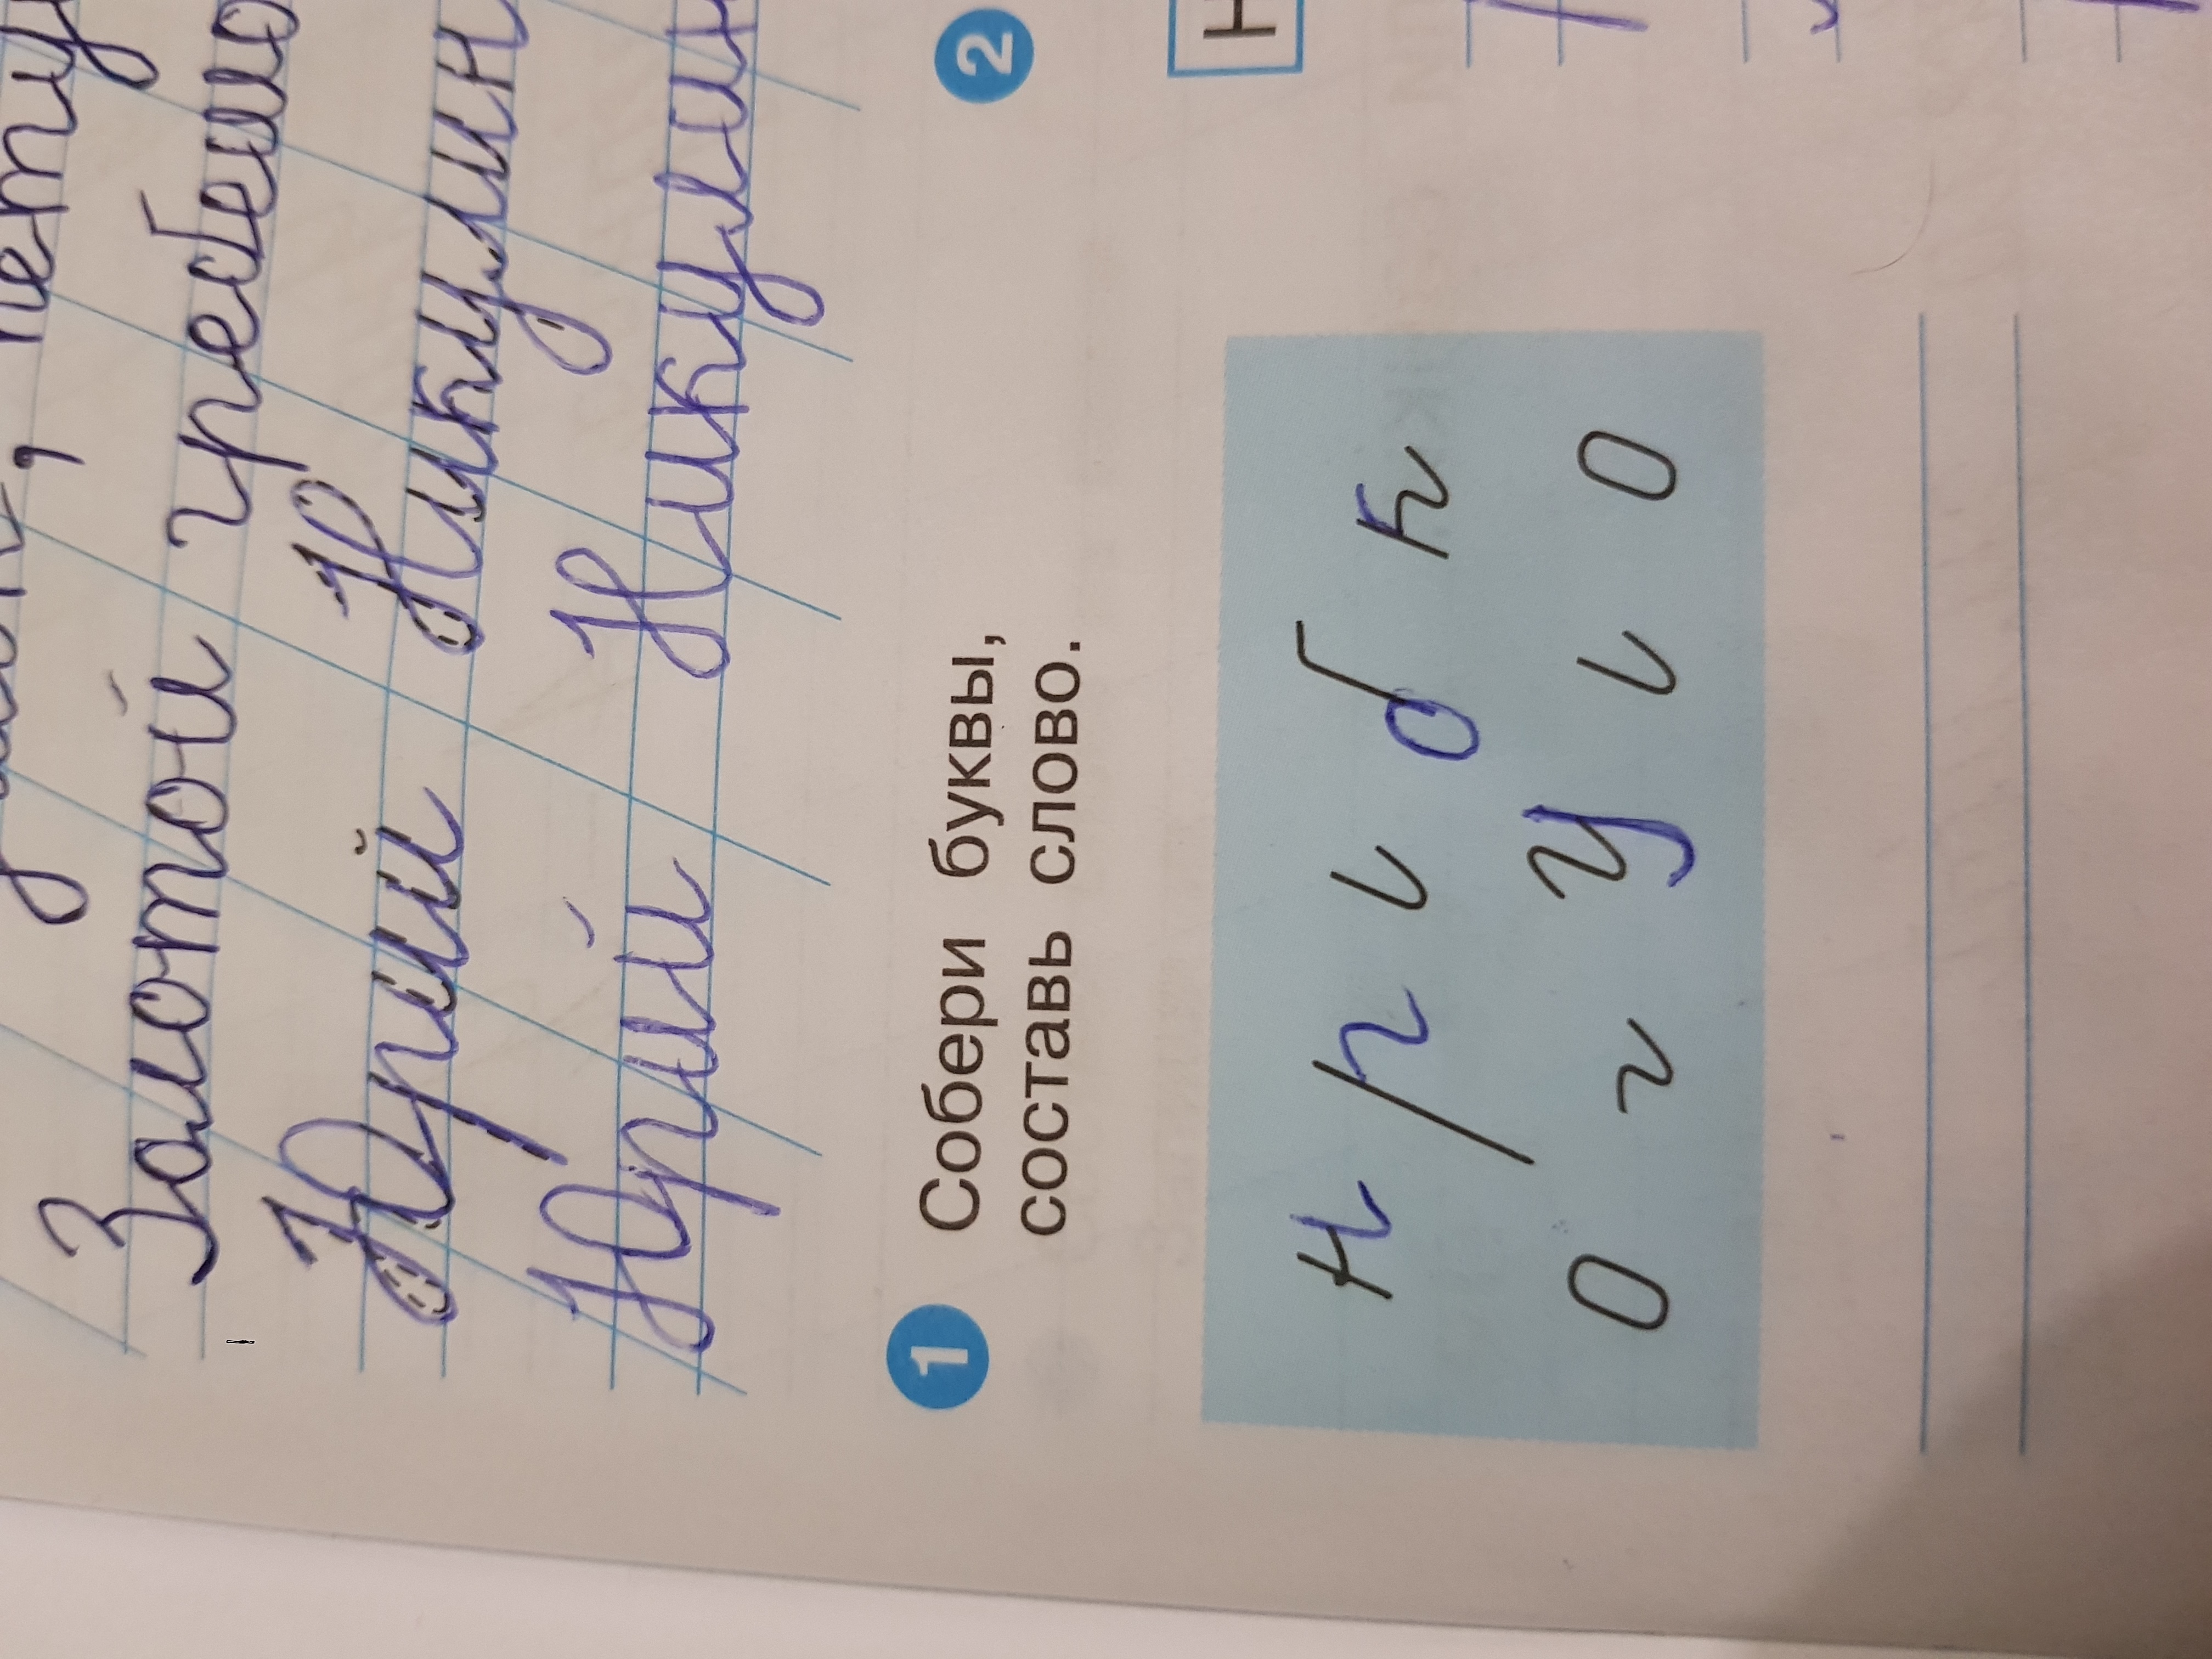 , пету
Золотой гребешо
Юрий Никулин
Юрий Никулин
1 Собери буквы,
составь слово.
2
Н
н р ι б к
о г у ι о